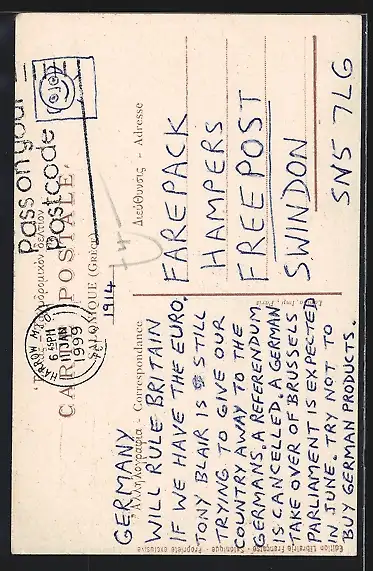 Pass on your
Postcode
HARROW MIDDX
6 45PM
11 JAN
1999
CARTE POSTALE
SALONIQUE (Grèce)
1914
Ἀλληλογραφία - Correspondance
Διεύθυνσις - Adresse
GERMANY
WILL RULE BRITAIN
IF WE HAVE THE EURO.
TONY BLAIR IS STILL
TRYING TO GIVE OUR
COUNTRY AWAY TO THE
GERMANS. A REFERENDUM
IS CANCELLED. A GERMAN
TAKE OVER OF BRUSSELS
PARLIAMENT IS EXPECTED
IN JUNE. TRY NOT TO
BUY GERMAN PRODUCTS.
FAREPACK
HAMPERS
FREEPOST
SWINDON
SN5 7LG
Imp. Paris
Edition Librairie Française - Salonique - Propriété exclusive